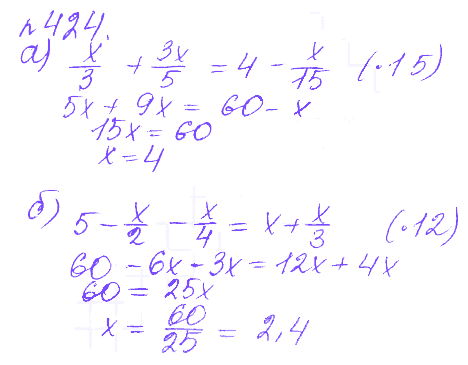 №424.
а) x/3 + 3x/5 = 4 - x/15 (·15)
5x + 9x = 60 - x
15x = 60
x = 4
б) 5 - x/2 - x/4 = x + x/3 (·12)
60 - 6x - 3x = 12x + 4x
60 = 25x
x = 60/25 = 2,4